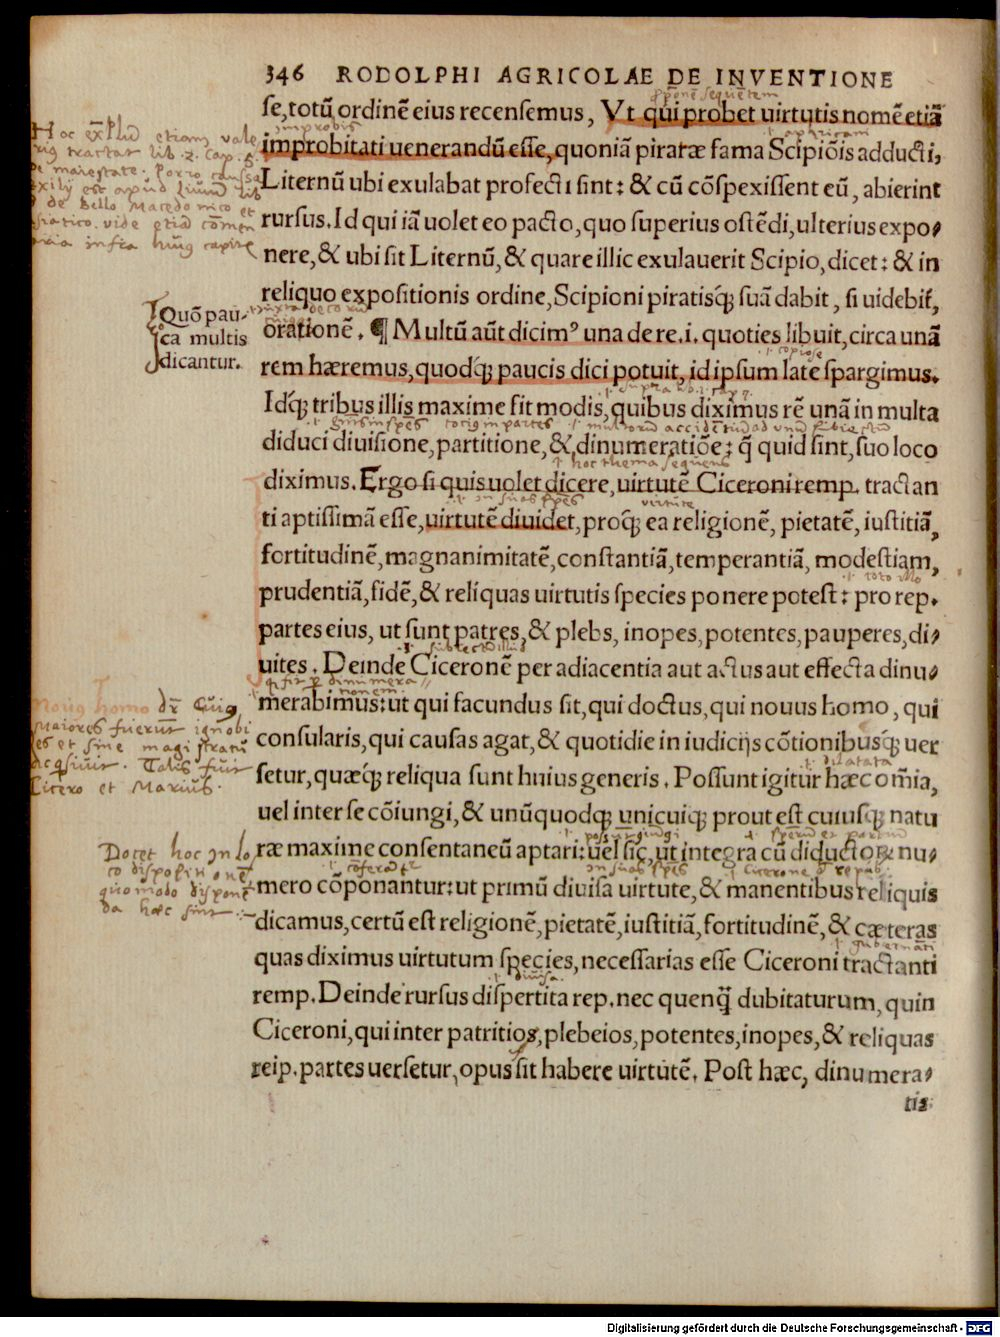 346 RODOLPHI AGRICOLAE DE INVENTIONE
se, totũ ordinẽ eius recensemus, Vt qui probet uirtutis nomẽ etiã
improbitati uenerandũ esse, quoniã piratæ fama Scipiõis adducti,
Liternũ ubi exulabat profecti sint: & cũ cõspexissent eũ, abierint
rursus. Id qui iã uolet eo pacto, quo superius ostẽdi, ulterius expo-
nere, & ubi sit Liternũ, & quare illic exulauerit Scipio, dicet: & in
reliquo expositionis ordine, Scipioni piratisq́; suã dabit, si uidebit̃,
orationẽ. ¶ Multũ aũt dicimꝰ una de re .i. quoties libuit, circa unã
rem hæremus, quodq́; paucis dici potuit, id ipsum late spargimus.
Idq́; tribus illis maxime fit modis, quibus diximus rẽ unã in multa
diduci diuisione, partitione, & dinumeratiõe: q̃ quid sint, suo loco
diximus. Ergo si quis uolet dicere, uirtutẽ Ciceroni remp. tractan
ti aptissimã esse, uirtutẽ diuidet, proq́; ea religionẽ, pietatẽ, iustitiã,
fortitudinẽ, magnanimitatẽ, constantiã, temperantiã, modestiam,
prudentiã, fidẽ, & reliquas uirtutis species ponere potest: pro rep.
partes eius, ut sunt patres, & plebs, inopes, potentes, pauperes, di-
uites. Deinde Ciceronẽ per adiacentia aut actus aut effecta dinu-
merabimus: ut qui facundus sit, qui doctus, qui nouus homo, qui
consularis, qui causas agat, & quotidie in iudicijs cõtionibusq́; uer
setur, quæq́; reliqua sunt huius generis. Possunt igitur hæc om̃ia,
uel inter se cõiungi, & unũquodq; unicuiq; prout est cuiusq; natu
ræ maxime consentaneũ aptari: uel sic, ut integra cũ diductorꝝ nu-
mero cõponantur: ut primũ diuisa uirtute, & manentibus reliquis
dicamus, certũ est religionẽ, pietatẽ, iustitiã, fortitudinẽ, & cæteras
quas diximus uirtutum species, necessarias esse Ciceroni tractanti
remp. Deinde rursus dispertita rep. nec quenq̃ dubitaturum, quin
Ciceroni, qui inter patritios, plebeios, potentes, inopes, & reliquas
reip. partes uersetur, opus sit habere uirtutẽ. Post hæc, dinumera-
tis
Quõ pau-
ca multis
dicantur.
Nouus homo dr̃ Cuius
Maiores fuerunt ignobi
les et sine magistratu
Talis fuit
Cicero et Marius.
Docet hoc in lo
co dispositionẽ
quomodo disponẽ
da hæc sint
Digitalisierung gefördert durch die Deutsche Forschungsgemeinschaft - DFG